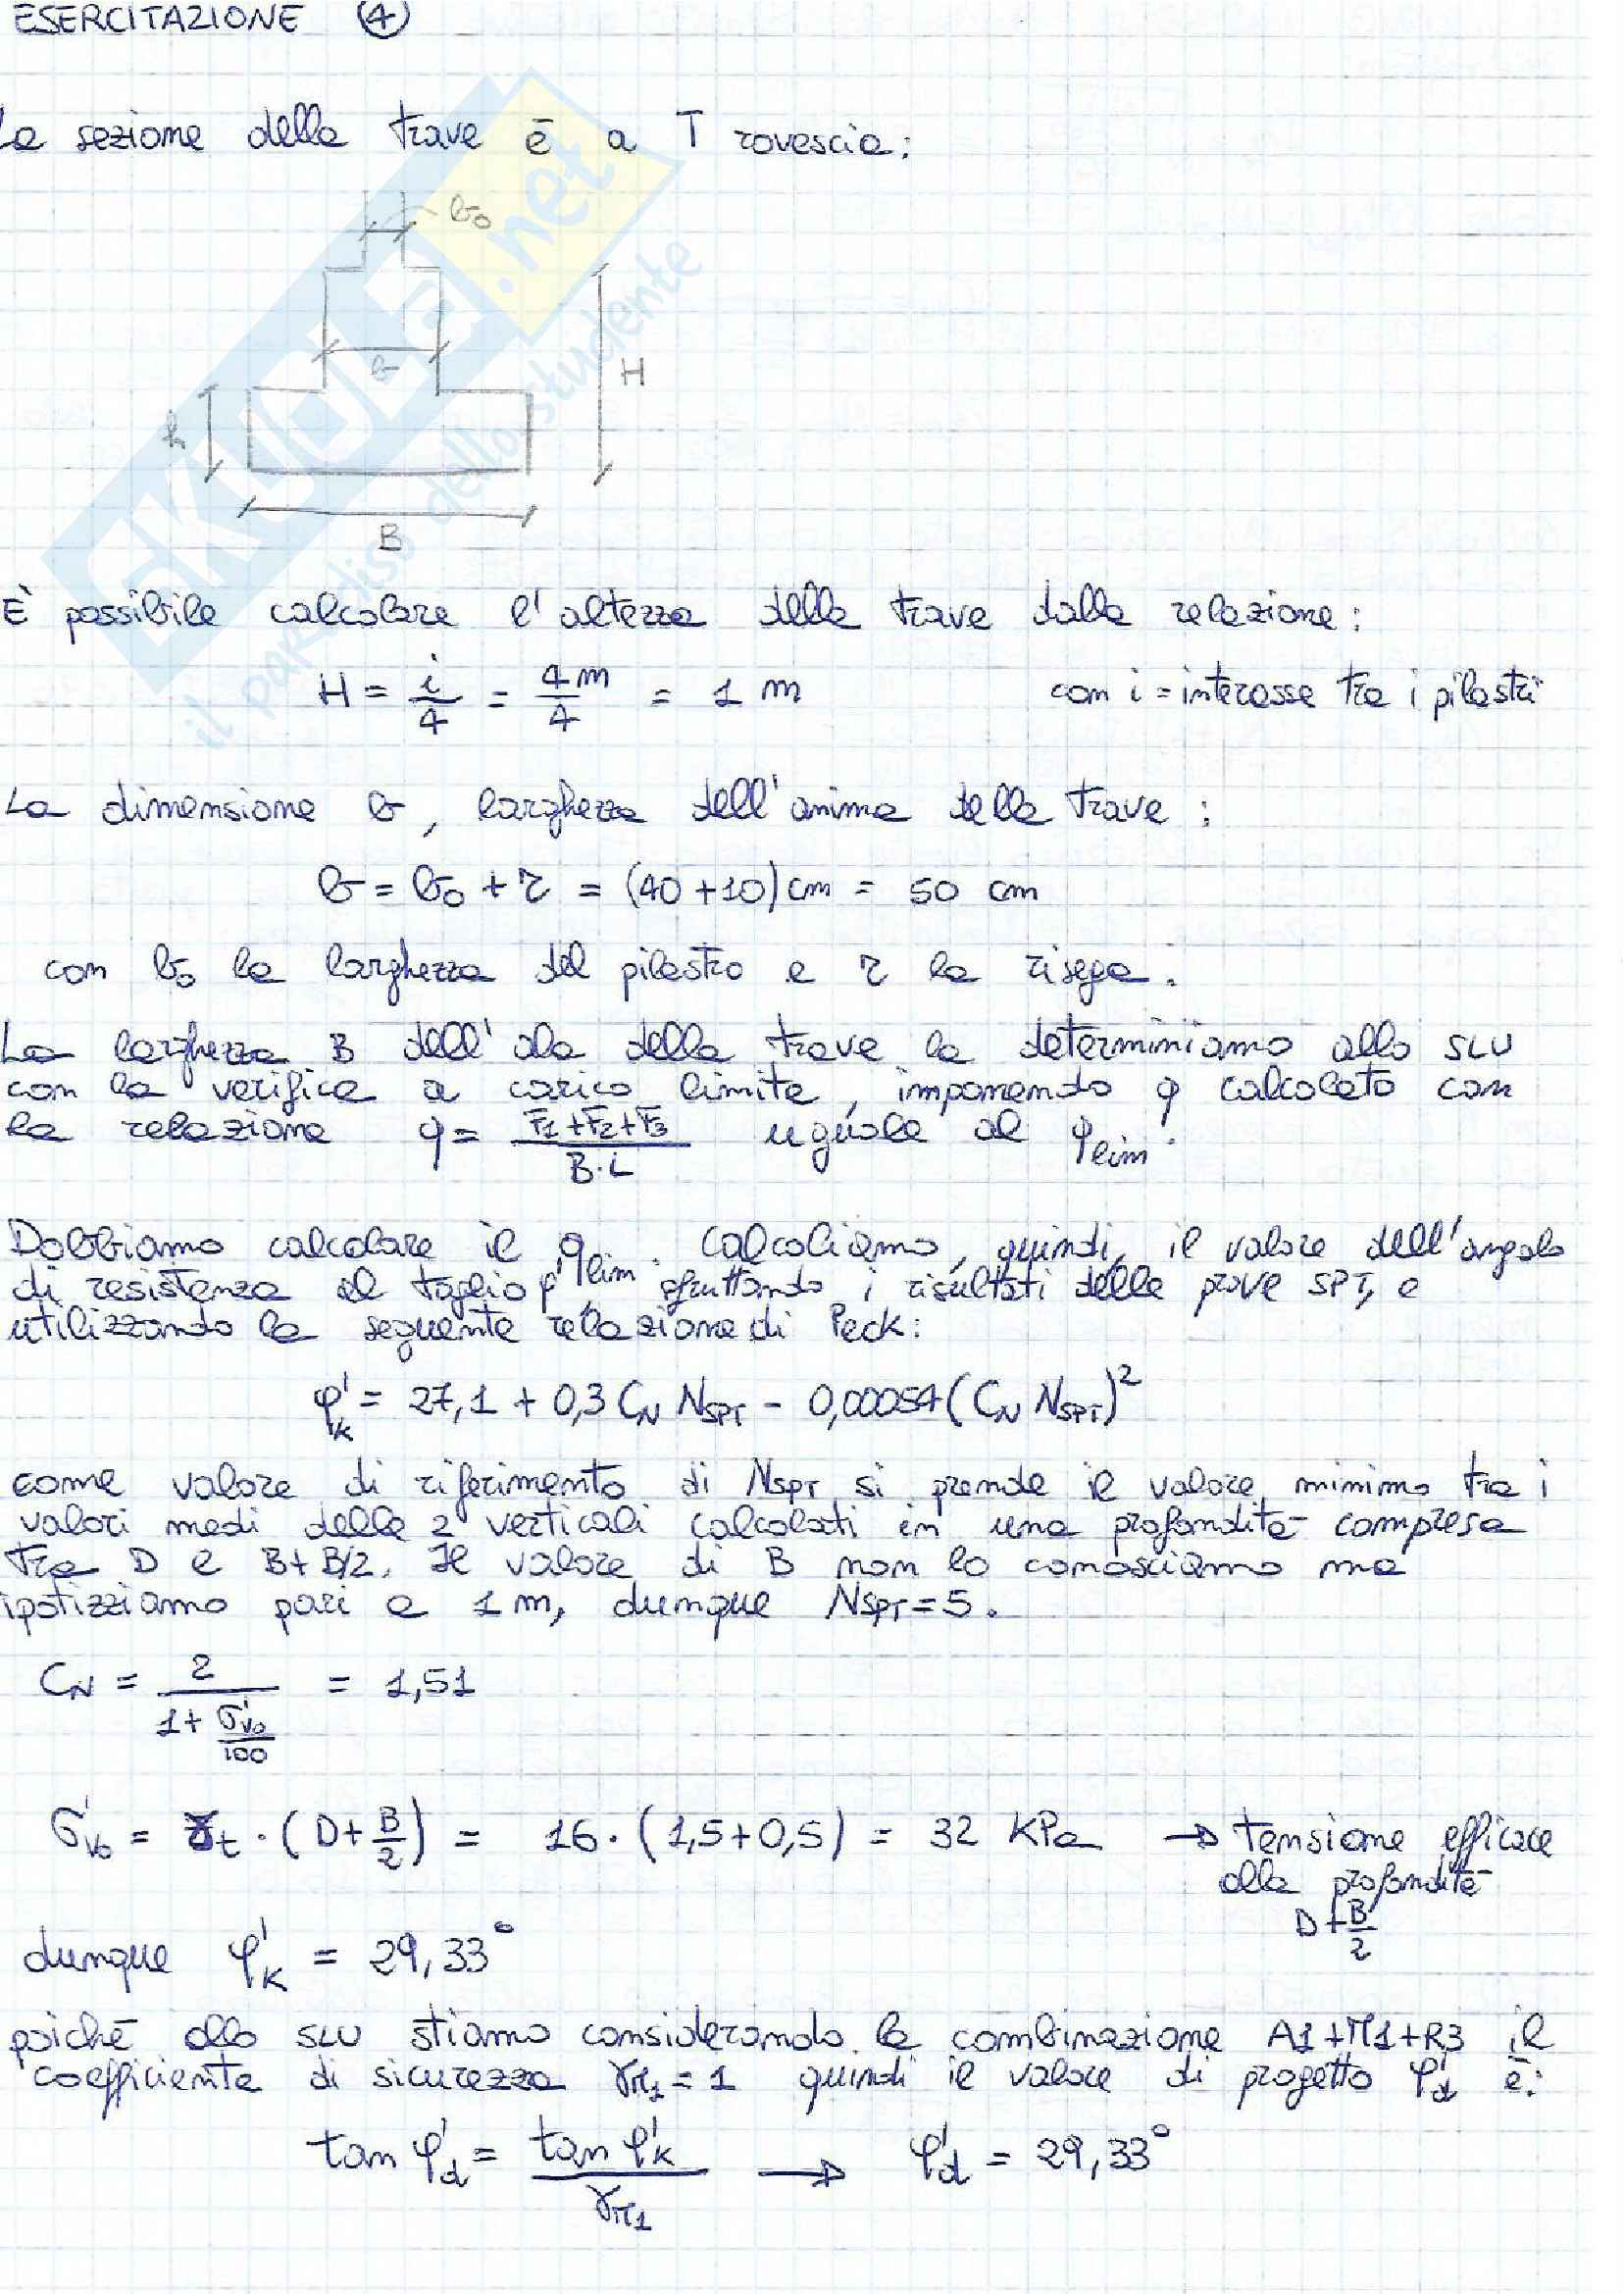 ESERCITAZIONE ④
La sezione della trave è a T rovescia:
b₀
b
H
h
B
È possibile calcolare l'altezza della trave dalla relazione:
H = i/4 = 4m/4 = 1 m con i = interasse tra i pilastri
La dimensione b, larghezza dell'anima della trave:
b = b₀ + r = (40+10) cm = 50 cm
con b₀ la larghezza del pilastro e r la risega.
La larghezza B dell'ala della trave la determiniamo allo SLU
con la verifica a carico limite, imponendo q calcolato con
la relazione q = (F1+F2+F3)/(B·L) uguale al qlim.
Dobbiamo calcolare il qlim. Calcoliamo, quindi, il valore dell'angolo
di resistenza al taglio φ', sfruttando i risultati delle prove SPT, e
utilizzando la seguente relazione di Peck:
φ'k = 27,1 + 0,3 CN NSPT − 0,00054 (CN NSPT)²
come valore di riferimento di NSPT si prende il valore minimo tra i
valori medi delle 2 verticali calcolati in una profondità compresa
tra D e B+B/2. Il valore di B non lo conosciamo ma
ipotizziamo pari a 1 m, dunque NSPT = 5.
CN = 2/(1 + σ'v0/100) = 1,51
σ'v0 = γt · (D + B/2) = 16 · (1,5+0,5) = 32 KPa → tensione efficace
alla profondità
D + B/2
dunque φ'k = 29,33°
poiché allo SLU stiamo considerando la combinazione A1+M1+R3 il
coefficiente di sicurezza γM1 = 1 quindi il valore di progetto φ'd è:
tan φ'd = tan φ'k/γM1 → φ'd = 29,33°
SKUOLA.net
il paradiso dello studente